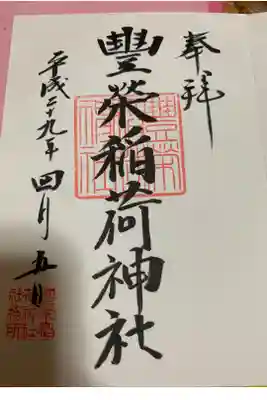 奉拝
豐榮稲荷神社
平成二十九年四月五日